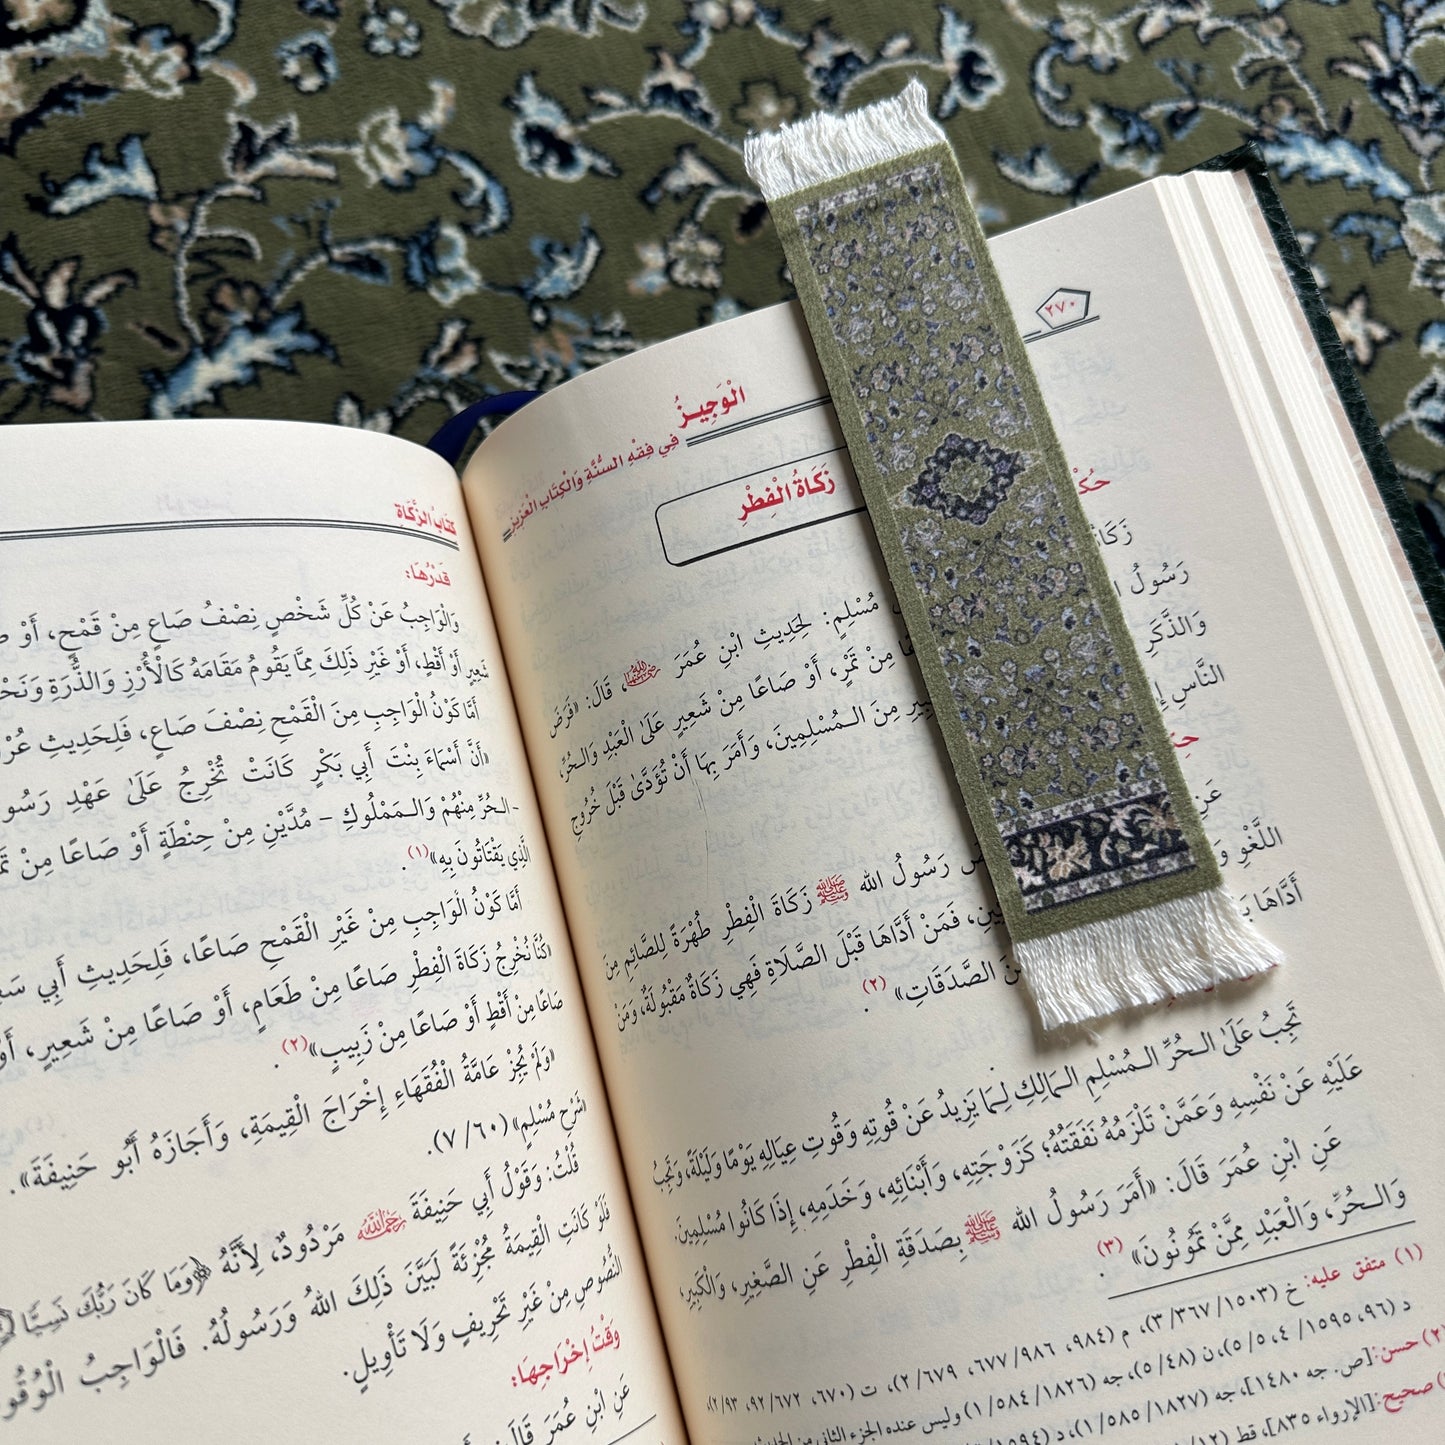 ٢٧٠
الْوَجِيـزُ
فِي فِقْهِ السُّنَّةِ وَالْكِتَابِ الْعَزِيزِ
زَكَاةُ الْفِطْرِ
مُسْلِمٍ: لِحَدِيثِ ابْنِ عُمَرَ رضي الله عنهما، قَالَ: «فَرَضَ
رَسُولُ
مِنْ تَمْرٍ، أَوْ صَاعًا مِنْ شَعِيرٍ عَلَىٰ الْعَبْدِ وَالـحُرِّ،
وَالذَّكَرِ
مِنَ الـمُسْلِمِينَ، وَأَمَرَ بِهَا أَنْ تُؤَدَّىٰ قَبْلَ خُرُوجِ
النَّاسِ
عَنِ
رَسُولُ الله ﷺ زَكَاةَ الْفِطْرِ طُهْرَةً لِلصَّائِمِ مِنَ
اللَّغْوِ
فَمَنْ أَدَّاهَا قَبْلَ الصَّلَاةِ فَهِي زَكَاةٌ مَقْبُولَةٌ، وَمَنْ
أَدَّاهَا
الصَّدَقَاتِ» (٢).
تَجِبُ عَلَىٰ الـحُرِّ الـمُسْلِمِ الـمَالِكِ لِـمَا يَزِيدُ عَنْ قُوتِهِ وَقُوتِ عِيَالِهِ يَوْمًا وَلَيْلَةً، وَتَجِبُ
عَلَيْهِ عَنْ نَفْسِهِ وَعَمَّنْ تَلْزَمُهُ نَفَقَتُهُ؛ كَزَوْجَتِهِ، وَأَبْنَائِهِ، وَخَدَمِهِ، إِذَا كَانُوا مُسْلِمِينَ.
عَنِ ابْنِ عُمَرَ قَالَ: «أَمَرَ رَسُولُ الله ﷺ بِصَدَقَةِ الْفِطْرِ عَنِ الصَّغِيرِ، وَالْكَبِيرِ،
وَالـحُرِّ، وَالْعَبْدِ مِمَّنْ تَمُونُونَ» (٣).
(١) متفق عليه: خ (١٥٠٣/ ٣٦٧/ ٣)، م (٩٨٤، ٩٨٦/ ٦٧٧، ٦٧٩/ ٢)، ت (٦٧٠، ٦٧٢/ ٩٢، ٩٣/ ٢)،
د (١٥٩٥، ٩٦/ ٤، ٥/ ٥)، ن (٤٨/ ٥)، جه (١٨٢٦/ ٥٨٤/ ١) وليس عنده الجزء الثاني من
(٢) حسن: [ص. جه ١٤٨٠]، جه (١٨٢٧/ ٥٨٥/ ١)، د
صحيح: [الإرواء ٨٣٥]، قط
كتَابُ الزَّكَاةِ
قَدْرُهَا:
وَالْوَاجِبُ عَنْ كُلِّ شَخْصٍ نِصْفُ صَاعٍ مِنْ قَمْحٍ، أَوْ
شَعِيرٍ أَوْ أَقْطٍ، أَوْ غَيْرِ ذَلِكَ مِمَّا يَقُومُ مَقَامَهُ كَالْأُرْزِ وَالذُّرَةِ وَنَحْ
أَمَّا كَوْنُ الْوَاجِبِ مِنَ الْقَمْحِ نِصْفَ صَاعٍ، فَلِحَدِيثِ عُرْ
«أَنَّ أَسْمَاءَ بِنْتَ أَبِي بَكْرٍ كَانَتْ تُخْرِجُ عَلَىٰ عَهْدِ رَسُو
- الـحُرِّ مِنْهُمْ وَالـمَمْلُوكِ - مُدَّيْنِ مِنْ حِنْطَةٍ أَوْ صَاعًا مِنْ
الَّذِي يَقْتَاتُونَ بِهِ» (١).
أَمَّا كَوْنُ الْوَاجِبِ مِنْ غَيْرِ الْقَمْحِ صَاعًا، فَلِحَدِيثِ أَبِي
«كُنَّا نُخْرِجُ زَكَاةَ الْفِطْرِ صَاعًا مِنْ طَعَامٍ، أَوْ صَاعًا مِنْ شَعِيرٍ،
صَاعًا مِنْ أَقْطٍ أَوْ صَاعًا مِنْ زَبِيبٍ» (٢).
«وَلَمْ يُجِزْ عَامَّةُ الْفُقَهَاءِ إِخْرَاجَ الْقِيمَةِ، وَأَجَازَهُ أَبُو حَنِيفَةَ».
«شَرْحِ مُسْلِمٍ» (٦٠/ ٧).
قُلْتُ: وَقَوْلُ أَبِي حَنِيفَةَ رحمه الله مَرْدُودٌ، لِأَنَّهُ ﴿وَمَا كَانَ رَبُّكَ نَسِيًّا﴾
فَلَوْ كَانَتِ الْقِيمَةُ مُجْزِئَةً لَبَيَّنَ ذَلِكَ اللهُ وَرَسُولُهُ. فَالْوَاجِبُ الْوُقُو
النُّصُوصِ مِنْ غَيْرِ تَحْرِيفٍ وَلَا تَأْوِيلٍ.
وَقْتُ إِخْرَاجِهَا:
عَنِ ابْنِ عُمَرَ